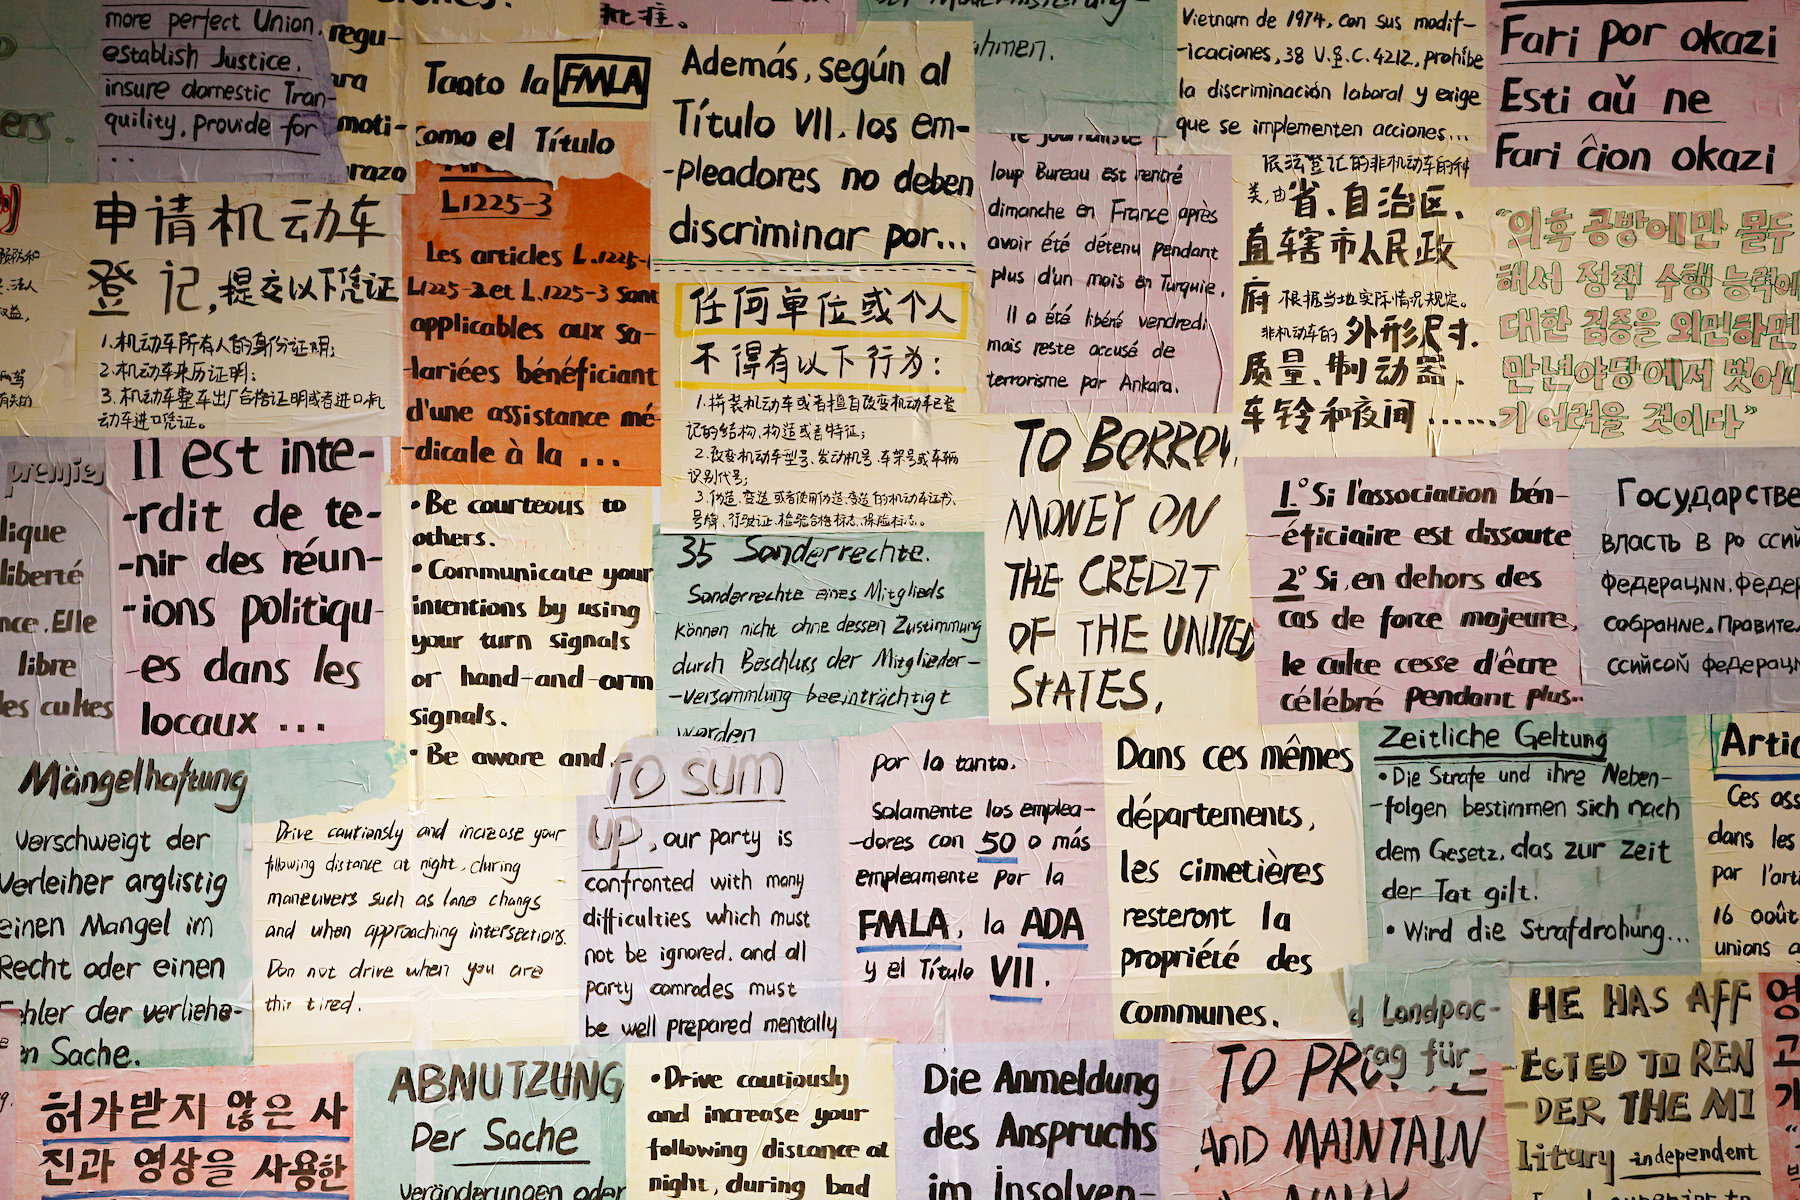 more perfect Union,
establish Justice,
insure domestic Tran-
quility, provide for
...
regu-
ara
moti-
razo
Tanto la FMLA
como el Título
Además, según al
Título VII. los em-
-pleadores no deben
discriminar por...
ahmen.
Vietnam de 1974, con sus modif-
-icaciones, 38 U.S.C. 4212, prohíbe
la discriminación laboral y exige
que se implementen acciones...
Fari por okazi
Esti aŭ ne
Fari ĉion okazi
ers.
申请机动车
登记,提交以下凭证
1.机动车所有人的身份证明;
2.机动车来历证明;
3.机动车整车出厂合格证明或者进口机
动车进口凭证。
L1225-3
Les articles L.1225-1
L1225-2.et L.1225-3 sont
applicables aux sa-
-lariées bénéficiant
d'une assistance mé-
-dicale à la ...
任何单位或个人
不得有以下行为:
1.拼装机动车或者擅自改变机动车已登
记的结构、构造或者特征;
2.改变机动车型号、发动机号、车架号或车辆
识别代号;
3.伪造、变造或者使用伪造、变造的机动车证书、
号牌、行驶证、检验合格标志、保险标志。
le journaliste
loup Bureau est rentré
dimanche en France après
avoir été détenu pendant
plus d'un mois en Turquie.
Il a été libéré vendredi
mais reste accusé de
terrorisme par Ankara.
依法登记的非机动车的种
类,由省、自治区、
直辖市人民政
府 根据当地实际情况规定。
非机动车的外形尺寸、
质量、制动器、
车铃和夜间......
"의혹 공방에만 몰두
해서 정책 수행 능력에
대한 검증을 외면하면
만년야당에서 벗어나
기 어려울 것이다"
premier
lique
liberté
nce. Elle
libre
les cultes
Il est inte-
-rdit de te-
-nir des réun-
-ions politiqu-
-es dans les
locaux ...
•Be courteous to
others.
•Communicate your
intentions by using
your turn signals
or hand-and-arm
signals.
•Be aware and
35 Sonderrechte.
Sonderrechte eines Mitglieds
können nicht ohne dessen Zustimmung
durch Beschluss der Mitglieder-
-versammlung beeinträchtigt
werden
TO BORROW
MONEY ON
THE CREDIT
OF THE UNITED
STATES,
1.° Si l'association bén-
-éficiaire est dissoute
2° Si, en dehors des
cas de force majeure,
le culte cesse d'être
célébré pendant plus..
Государстве
власть в ро ссий
федерации. федер
собрание. Правител
ссийсой федерац
Mängelhaftung
Verschweigt der
Verleiher arglistig
einen Mangel im
Recht oder einen
Fehler der verliehe-
en Sache.
Drive cautionsly and increase your
following distance at night, during
maneuvers such as lane changs
and when approaching intersections.
Don not drive when you are
thir tired.
TO sum
up, our party is
confronted with many
difficulties which must
not be ignored. and all
party comrades must
be well prepared mentally
por lo tanto.
Solamente los emplea-
-dores con 50 o más
empleamente por la
FMLA, la ADA
y el Título VII.
Dans ces mêmes
départements,
les cimetières
resteront la
propriété des
Communes.
Zeitliche Geltung
•Die Strafe und ihre Neben-
-folgen bestimmen sich nach
dem Gesetz, das zur Zeit
der Tat gilt.
•Wird die Strafdrohung...
Artic
Ces ass
dans les
par l'arti
16 août
unions a
d Landpac-
rag für
허가받지 않은 사
진과 영상을 사용한
ABNUTZUNG
Der Sache
Veränderungen oder
•Drive cautiously
and increase your
following distance at
night, during bad
Die Anmeldung
des Anspruchs
im Insolven-
TO PRO
AnD MAINTAIN
HE HAS AFF
ECTED TO REN
DER THE MI
litary independent
영
고
가